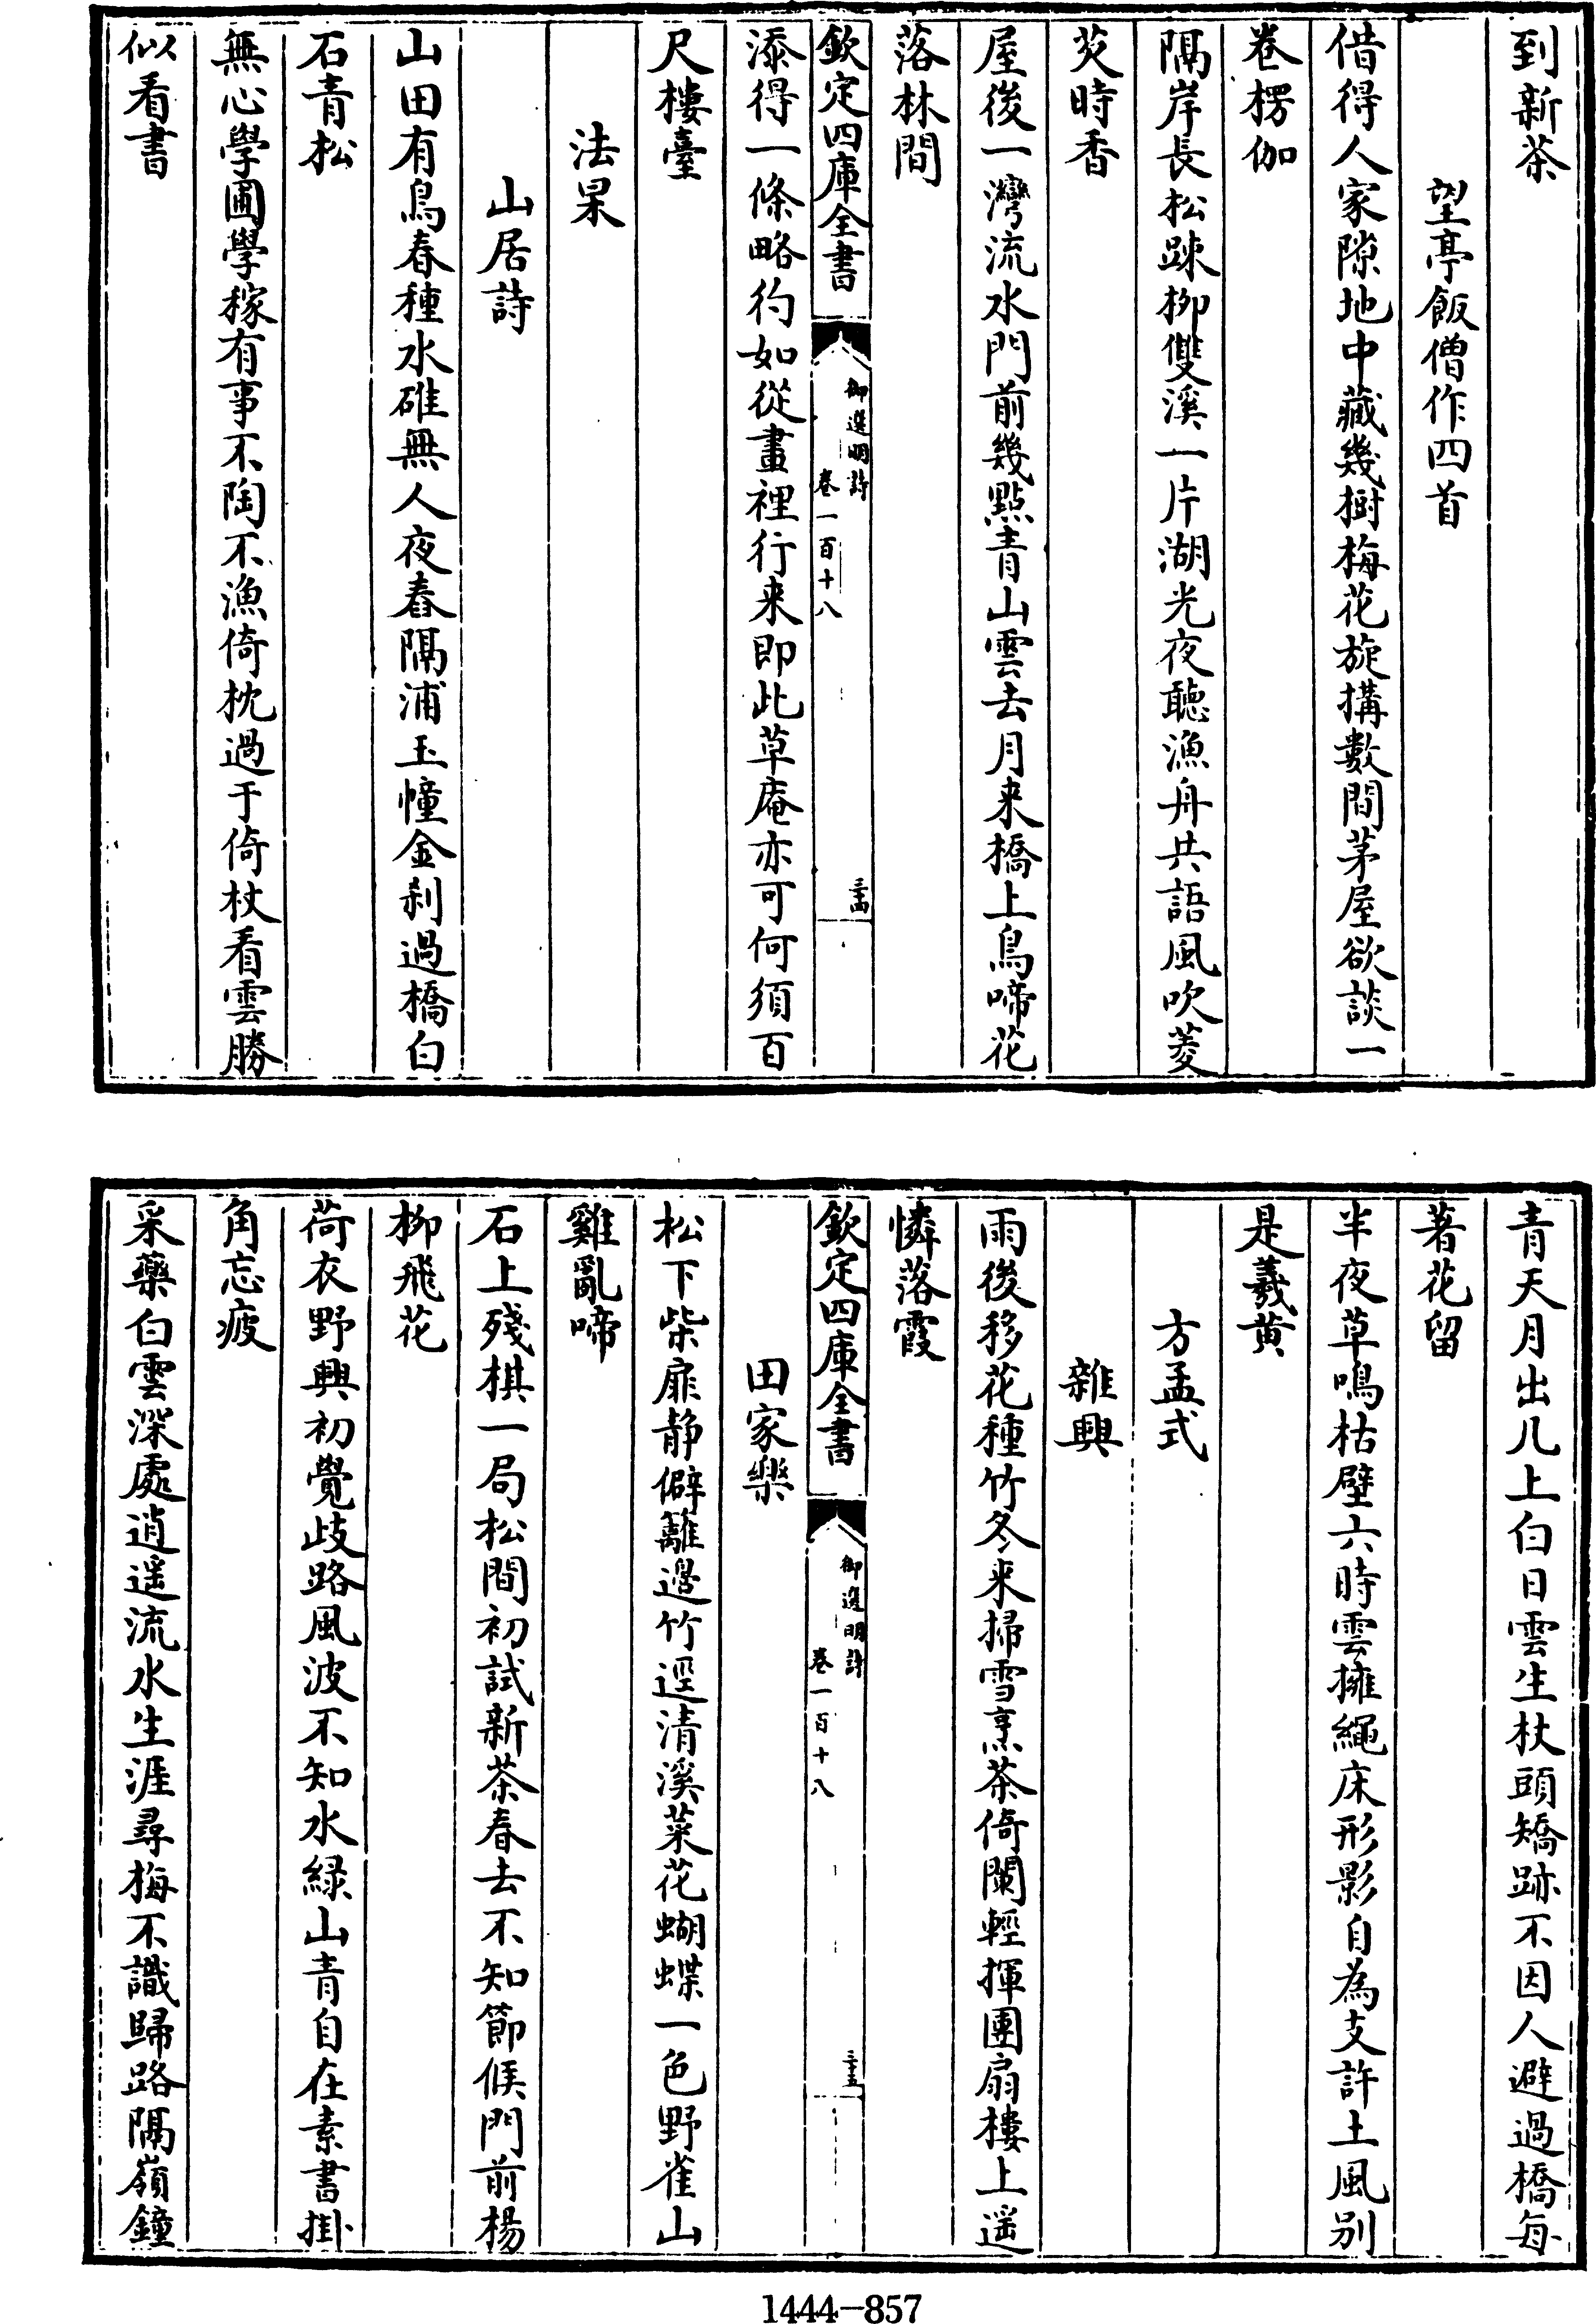 到新茶
望亭飯僧作四首
借得人家隙地中藏幾樹梅花旋搆數間茅屋欲談一
卷楞伽
隔岸長松踈柳雙溪一片湖光夜聽漁舟共語風吹菱
芡時香
屋後一灣流水門前幾㸃青山雲去月来橋上鳥啼花
落林間
欽定四庫全書
御選明詩
卷一百十八
三十四
添得一條略彴如從畫裡行来即此草庵亦可何須百
尺樓臺
法杲
山居詩
山田有鳥春種水碓無人夜舂隔浦玉幢金刹過橋白
石青松
無心學圃學稼有事不陶不漁倚枕過于倚杖看雲勝
似看書
青天月出几上白日雲生杖頭矯跡不因人避過橋每
著花留
半夜草鳴枯壁六時雲擁繩床形影自為支許土風别
是羲黄
方孟式
雜興
雨後移花種竹冬来掃雪烹茶倚闌輕揮團扇樓上遥
憐落霞
欽定四庫全書
御選明詩
卷一百十八
三十五
田家樂
松下柴扉静僻籬邉竹逕清溪菜花蝴蝶一色野雀山
雞亂啼
石上殘棋一局松間初試新茶春去不知節候門前楊
柳飛花
荷衣野興初覺歧路風波不知水緑山青自在素書掛
角忘疲
采藥白雲深處逍遥流水生涯尋梅不識歸路隔嶺鐘
1444-857